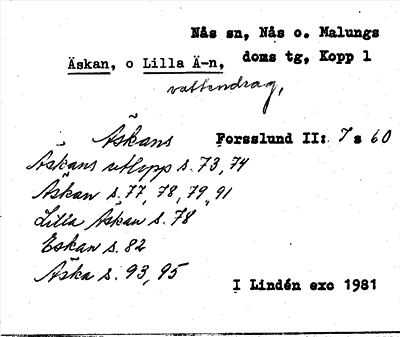 Nås sn, Nås o. Malungs
Äskan, o Lilla Ä-n, doms tg, Kopp l
vattendrag,
Äskans Forsslund II: 7 s 60
Äskans utlopp s. 73, 74
Äskan s. 77, 78, 79, 91
Lilla Äskan s. 78
Eskan s. 82
Äska s. 93, 95
I Lindén exc 1981